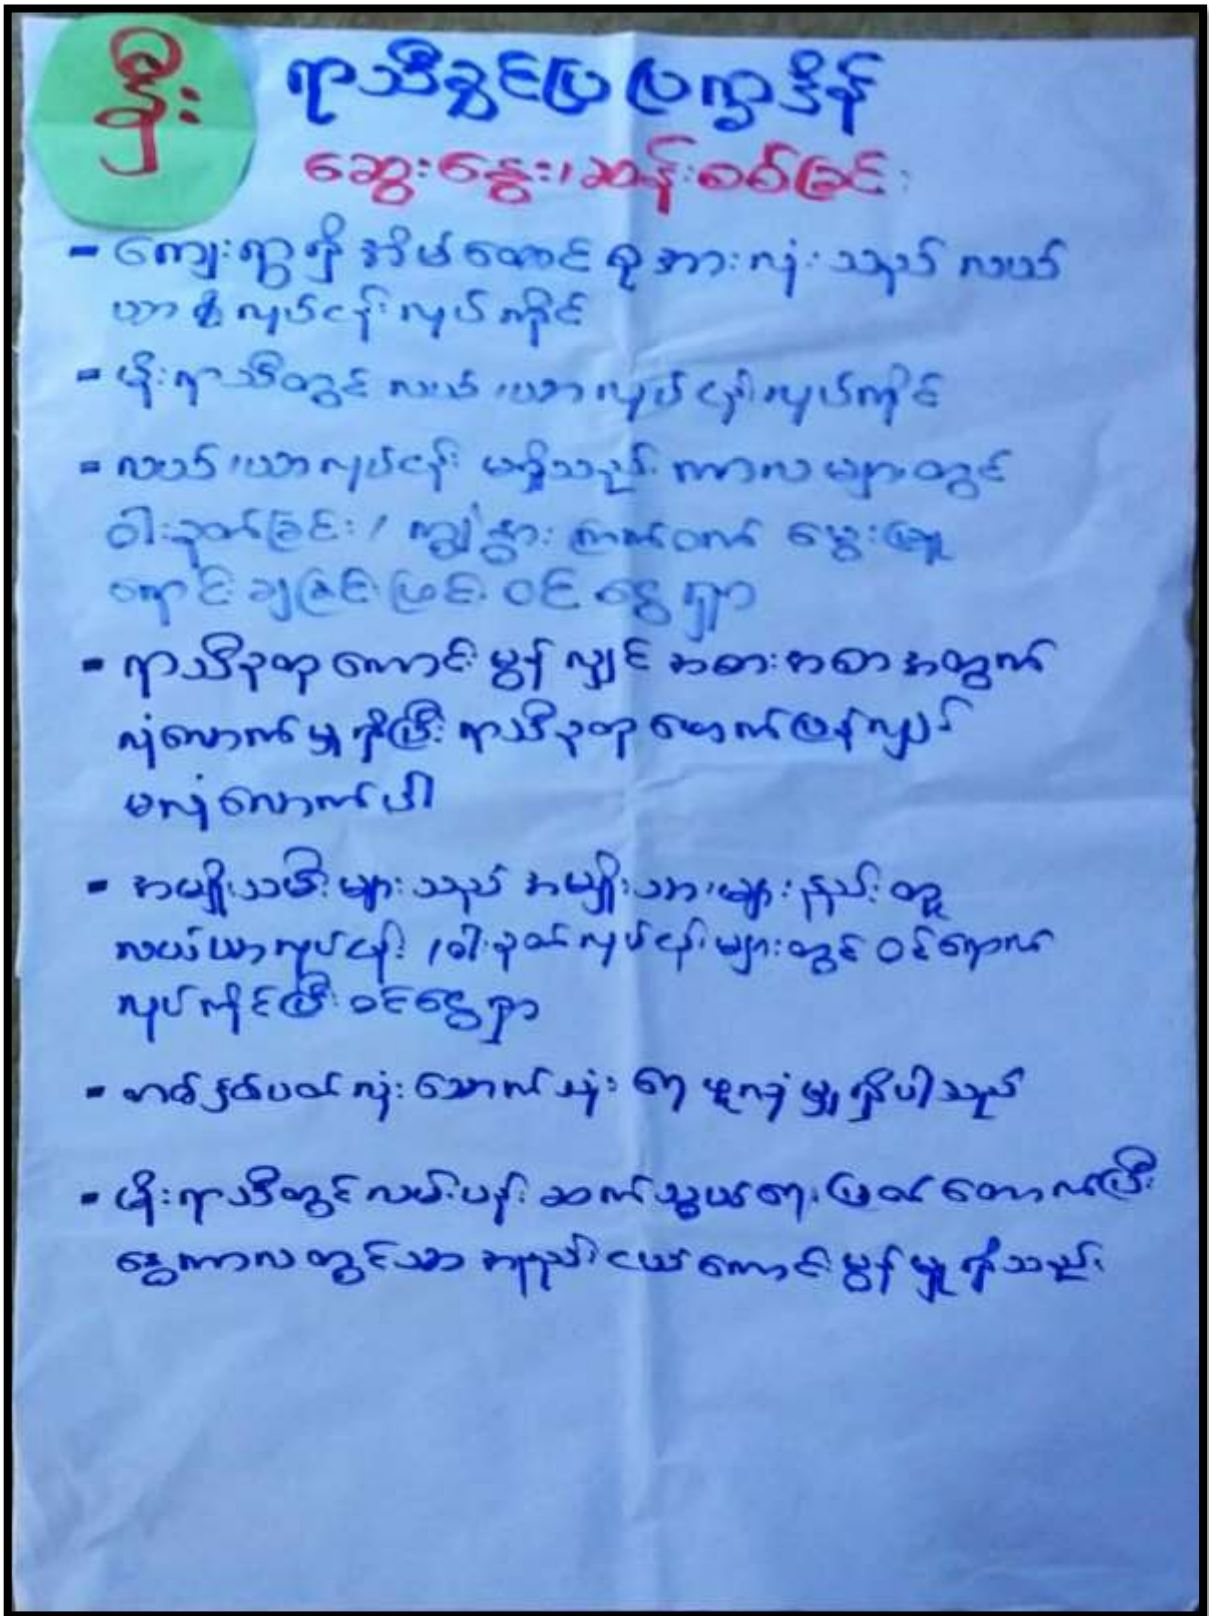 နှီး
ရာသီခွင်ပြ ပြက္ခဒိန်
ဆွေးနွေး၊ဆန်းစစ်ခြင်း
- ကျေးရွာရှိ အိမ်ထောင်စုအားလုံးသည် လယ်
ယာ လုပ်ငန်းလုပ်ကိုင်
- မိုးရာသီတွင် လယ်၊ယာလုပ်ငန်းလုပ်ကိုင်
- လယ်၊ယာလုပ်ငန်း မရှိသည့် ကာလများတွင်
ဝါးခုတ်ခြင်း၊ ကျွဲနွား ကြက်ဝက် မွေးမြူ
ရောင်းချခြင်းဖြင့် ဝင်ငွေရှာ
- ရာသီဥတုကောင်းမွန်လျှင် အစားအစာအတွက်
လုံလောက်မှုရှိပြီး ရာသီဥတုဖောက်ပြန်လျှင်
မလုံလောက်ပါ
- အမျိုးသမီးများသည် အမျိုးသားများနည်းတူ
လယ်ယာလုပ်ငန်း၊ဝါးခုတ်လုပ်ငန်းများတွင် ဝင်ရောက်
လုပ်ကိုင်ပြီး ဝင်ငွေရှာ
- တစ်နှစ်ပတ်လုံး သောက်သုံးရေ ဖူလုံမှုရှိပါသည်
- မိုးရာသီတွင် လမ်းပန်းဆက်သွယ်ရေး ပြတ်တောက်ပြီး
နွေကာလတွင်သာ အနည်းငယ်ကောင်းမွန်မှုရှိသည်။